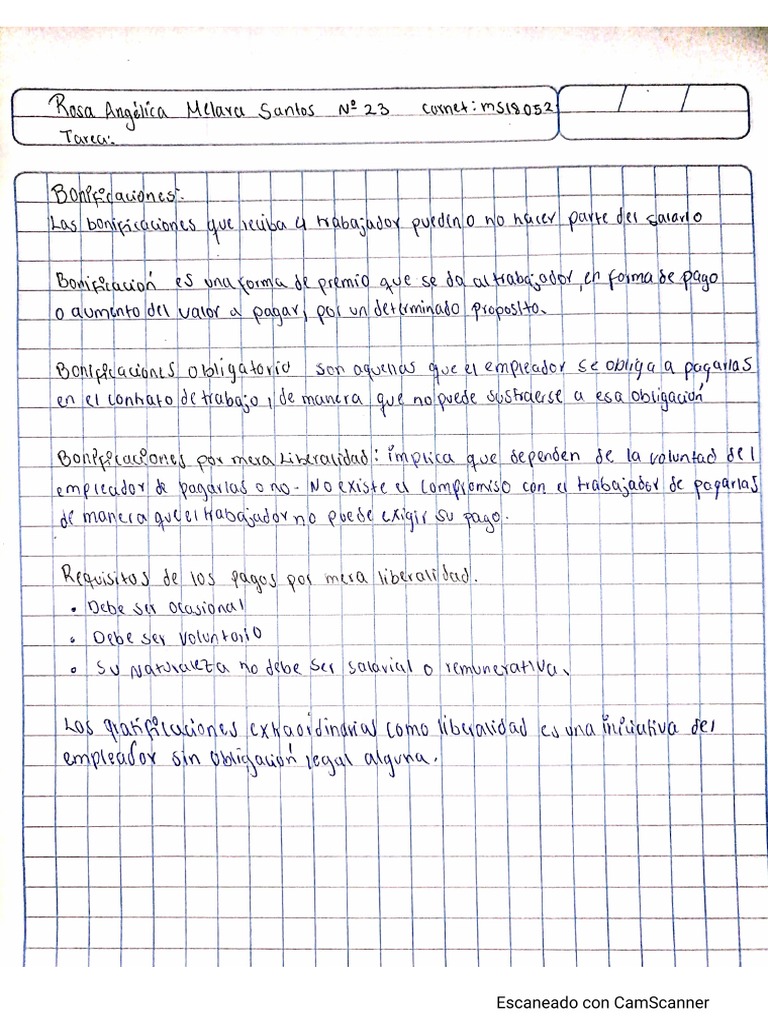 Rosa Angélica Melara Santos Nº 23 Carnet: MS18052
Tarea:
Bonificaciones:
Las bonificaciones que reciba el trabajador pueden o no hacer parte del salario
Bonificación es una forma de premio que se da al trabajador, en forma de pago
o aumento del valor a pagar, por un determinado proposito.
Bonificaciones obligatorio son aquellas que el empleador se obliga a pagarlas
en el contrato de trabajo, de manera que no puede sustraerse a esa obligación
Bonificaciones por mera liberalidad: implica que dependen de la voluntad del
empleador de pagarlas o no. No existe el compromiso con el trabajador de pagarlas
de manera que el trabajador no puede exigir su pago.
Requisitos de los pagos por mera liberalidad.
• Debe ser ocasional
• Debe ser voluntario
• Su naturaleza no debe ser salarial o remunerativa.
Las gratificaciones extraordinarias como liberalidad es una iniciativa del
empleador sin obligación legal alguna.
Escaneado con CamScanner